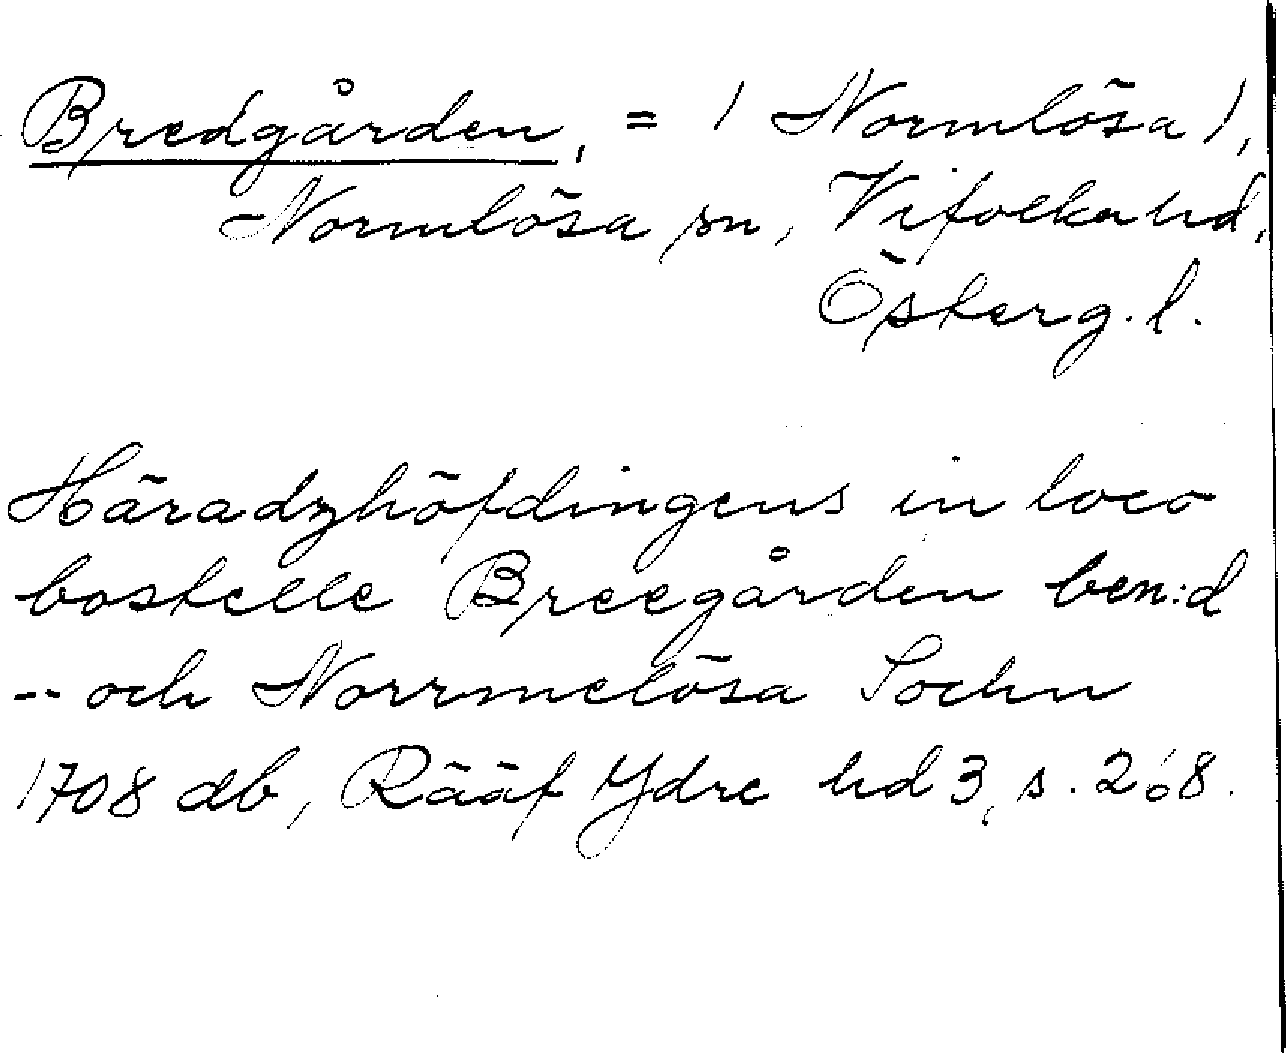 Bredgården, = / Normlösa /,
Normlösa sn, Vifolka hd,
Österg. l.
Häradzhöfdingens in loco
bostelle Breegården ben:d
-- och Norrmelösa Sochn
1708 db, Rääf Ydre hd 3, s. 268.